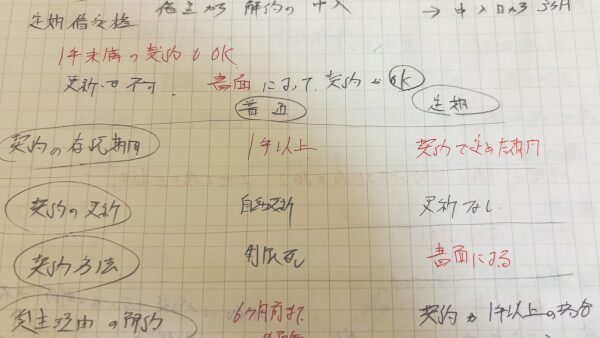 借主から解約の申入 → 申入日から3ヶ月
定期借家権
1年未満の契約もOK
更新も不可. 書面によって契約もOK
普通 定期
契約の存続期間 1年以上 契約で定めた期間
契約の更新 自動更新 更新なし
契約方法 制限なし 書面による
貸主理由の解約 6ヶ月前まで 契約が1年以上の場合